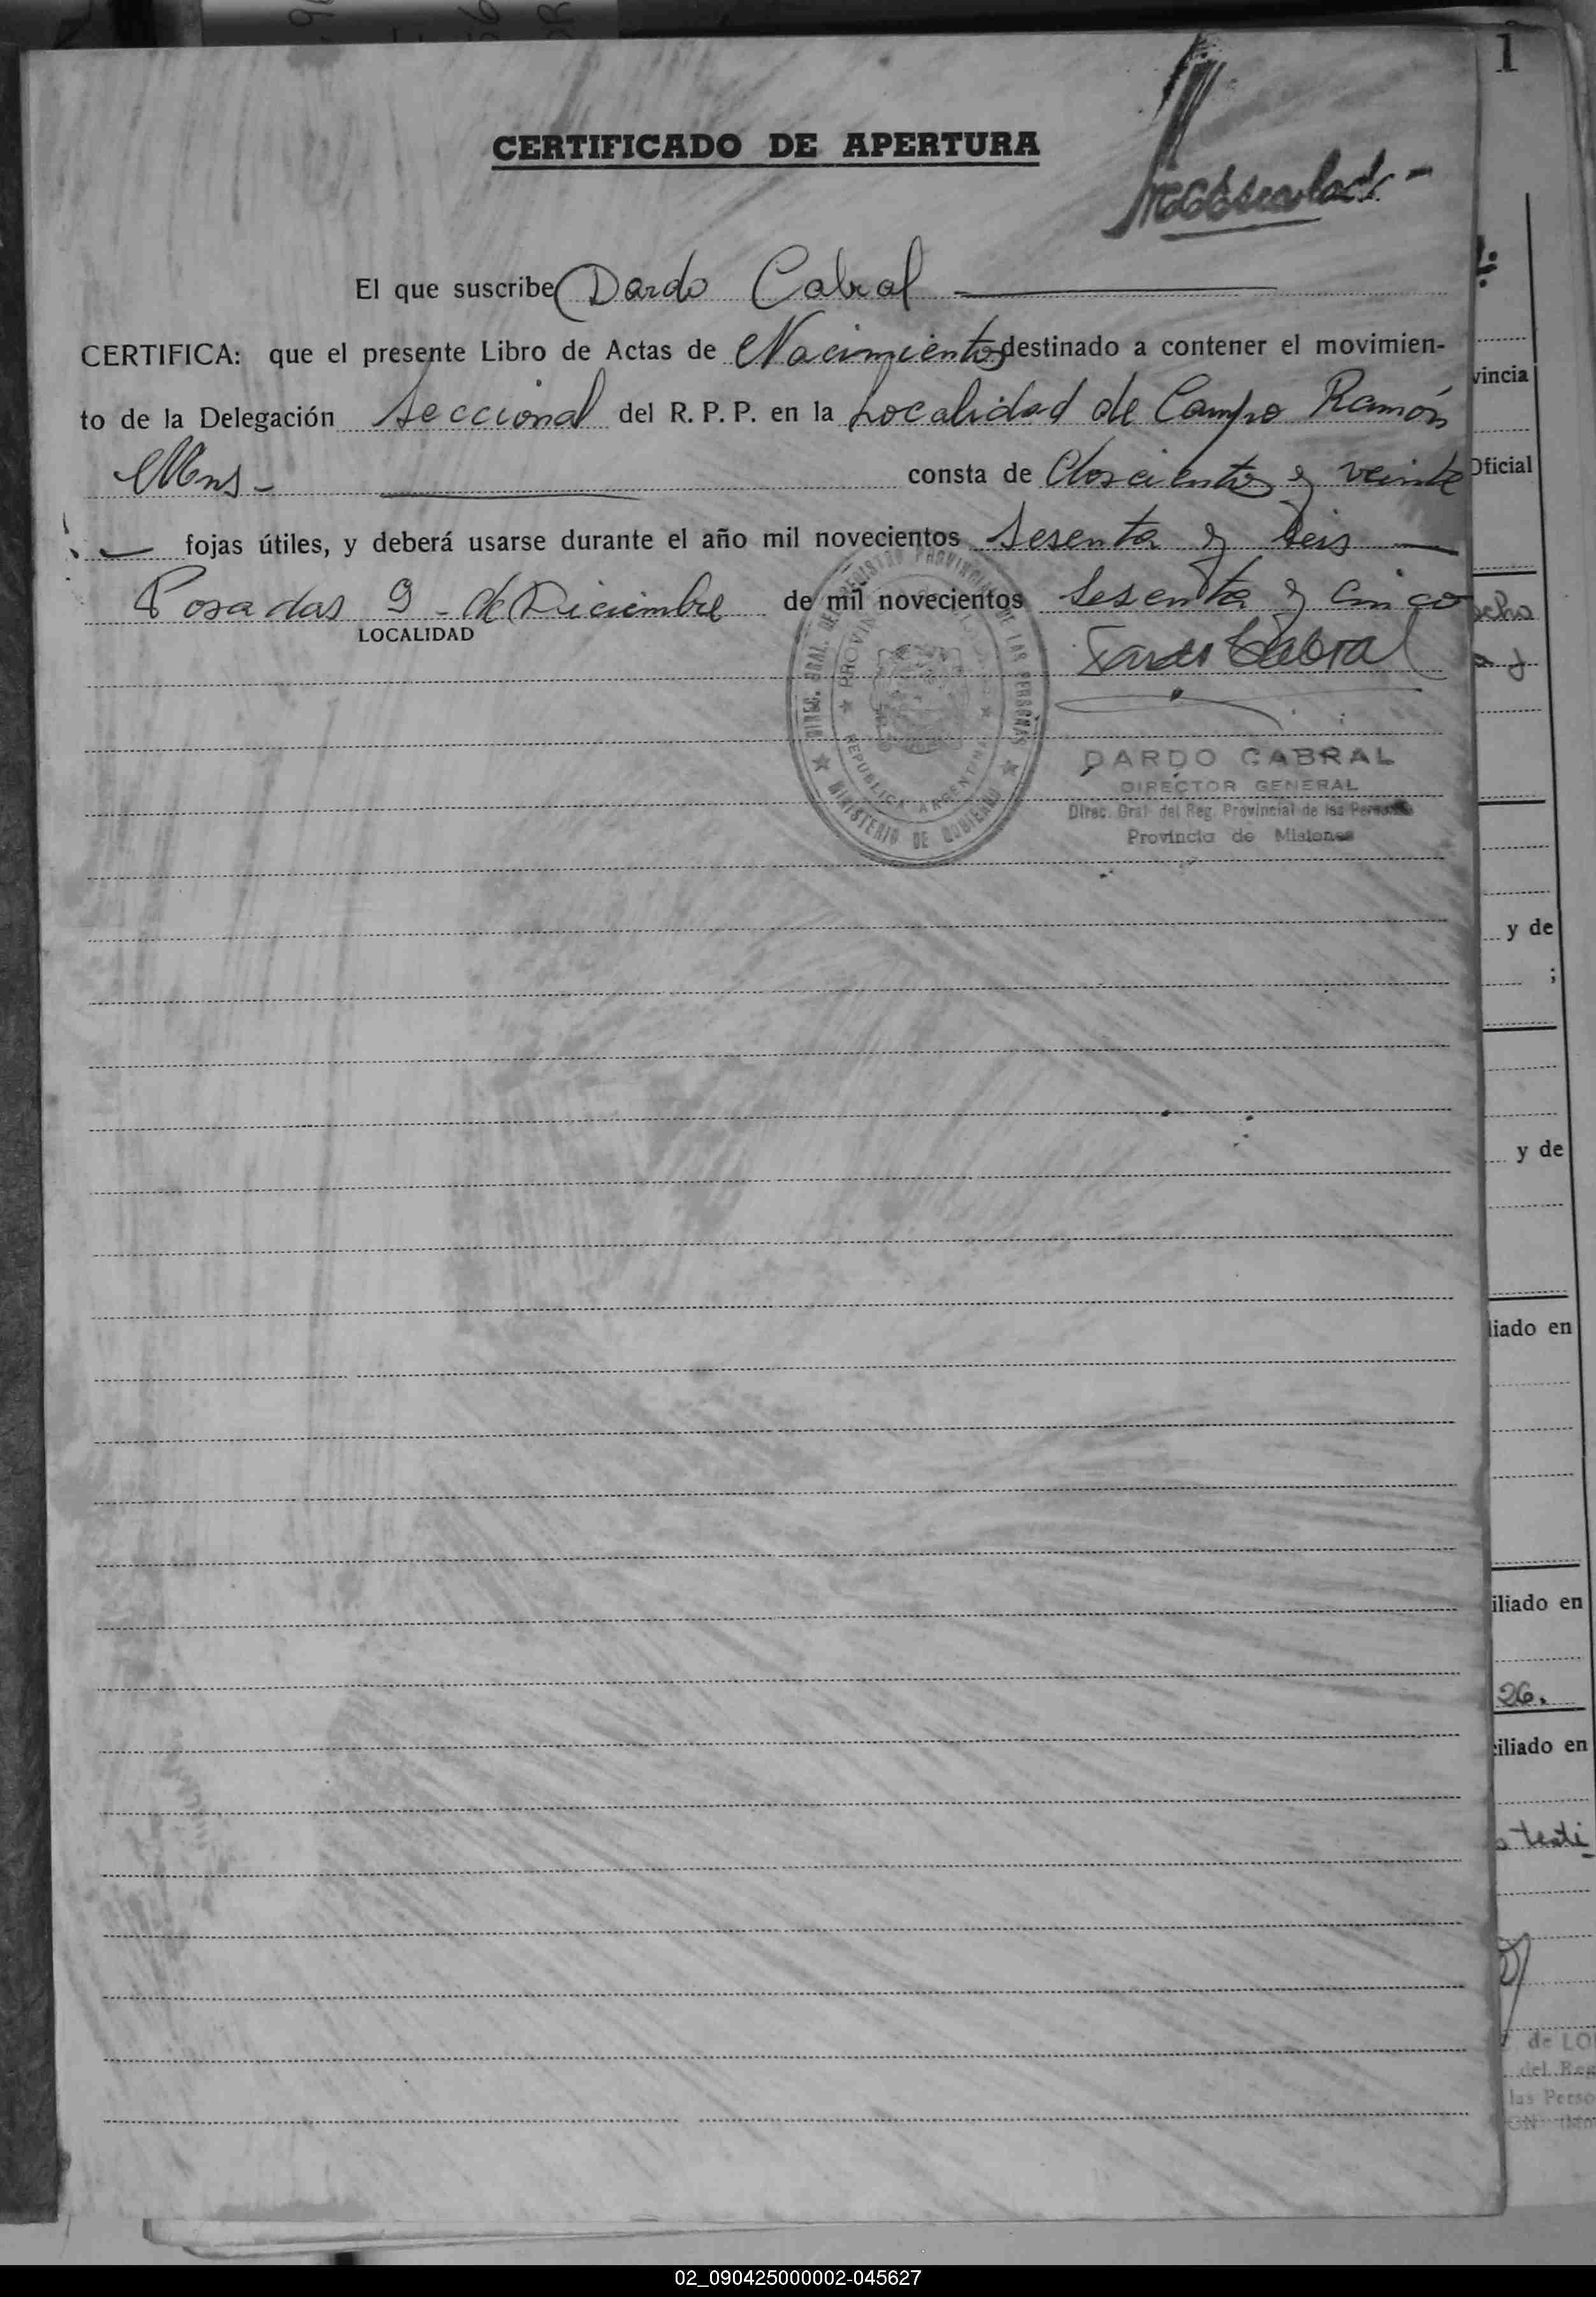 1
CERTIFICADO DE APERTURA
El que suscribe Dardo Cabral
CERTIFICA: que el presente Libro de Actas de Nacimientos destinado a contener el movimien-
to de la Delegación Seccional del R. P. P. en la Localidad de Campo Ramón
Mns - consta de Doscientos y veinte
fojas útiles, y deberá usarse durante el año mil novecientos Sesenta y Seis
Posadas 9 - de Diciembre de mil novecientos Sesenta y Cinco
LOCALIDAD
Dardo Cabral
DIREC. GRAL. DEL REGISTRO PROVINCIAL DE LAS PERSONAS
REPUBLICA ARGENTINA
MINISTERIO DE GOBIERNO
DARDO CABRAL
DIRECTOR GENERAL
Direc. Gral. del Reg. Provincial de las Personas
Provincia de Misiones
vincia
Oficial
y de
;
y de
liado en
iliado en
26.
ciliado en
testi
de LO
del Reg
las Perso
02_090425000002-045627